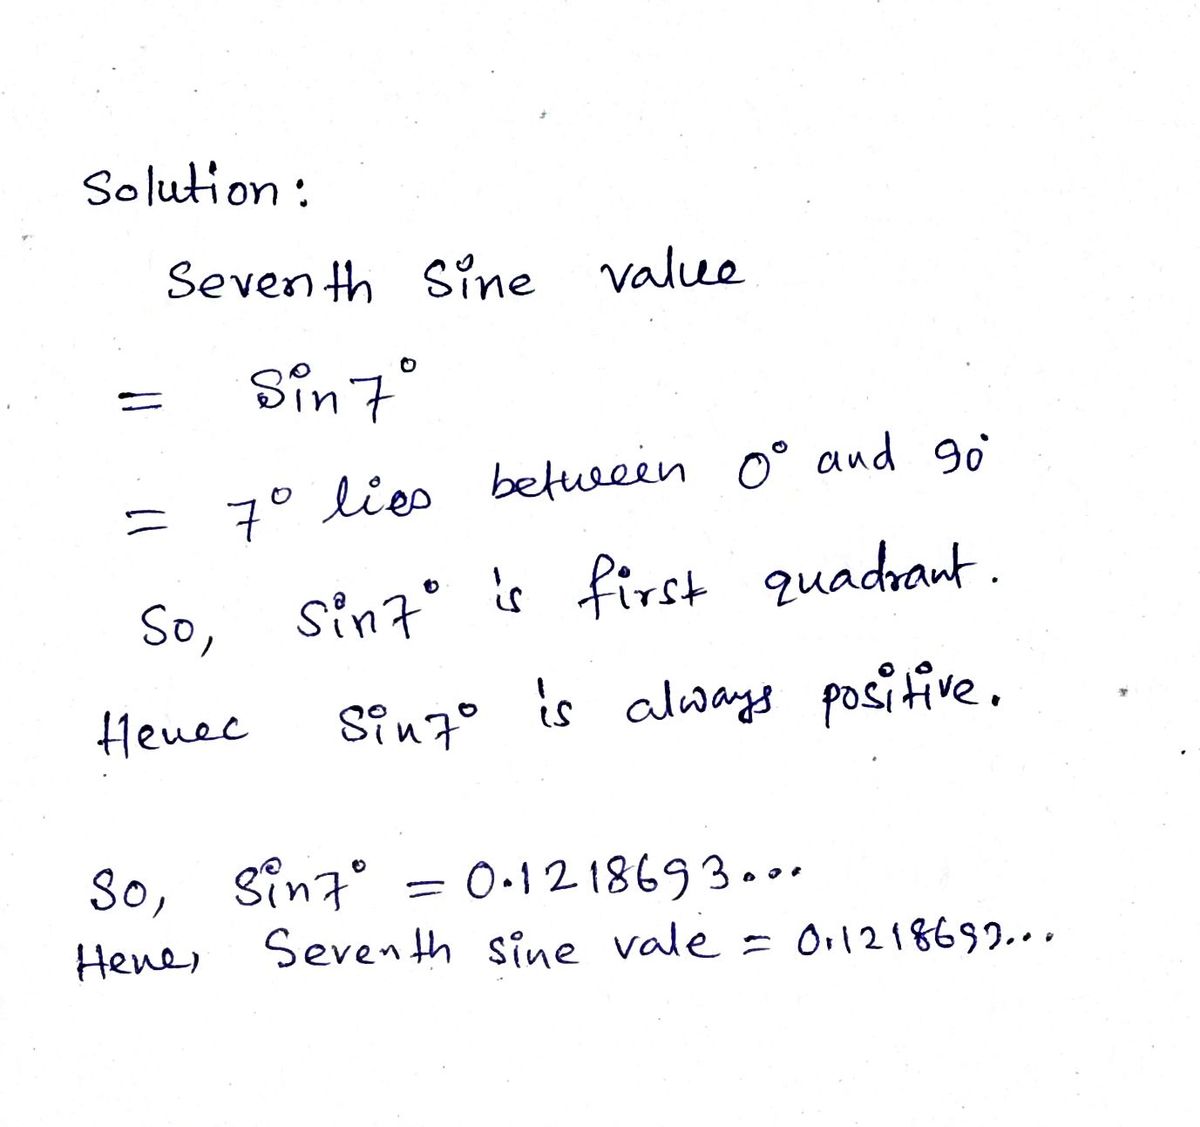 Solution:
Seventh Sine value
= Sin 7°
= 7° lies between 0° and 90°
So, Sin7° is first quadrant.
Henec Sin7° is always positive.
So, Sin7° = 0.1218693...
Hene, Seventh sine vale = 0.1218693...